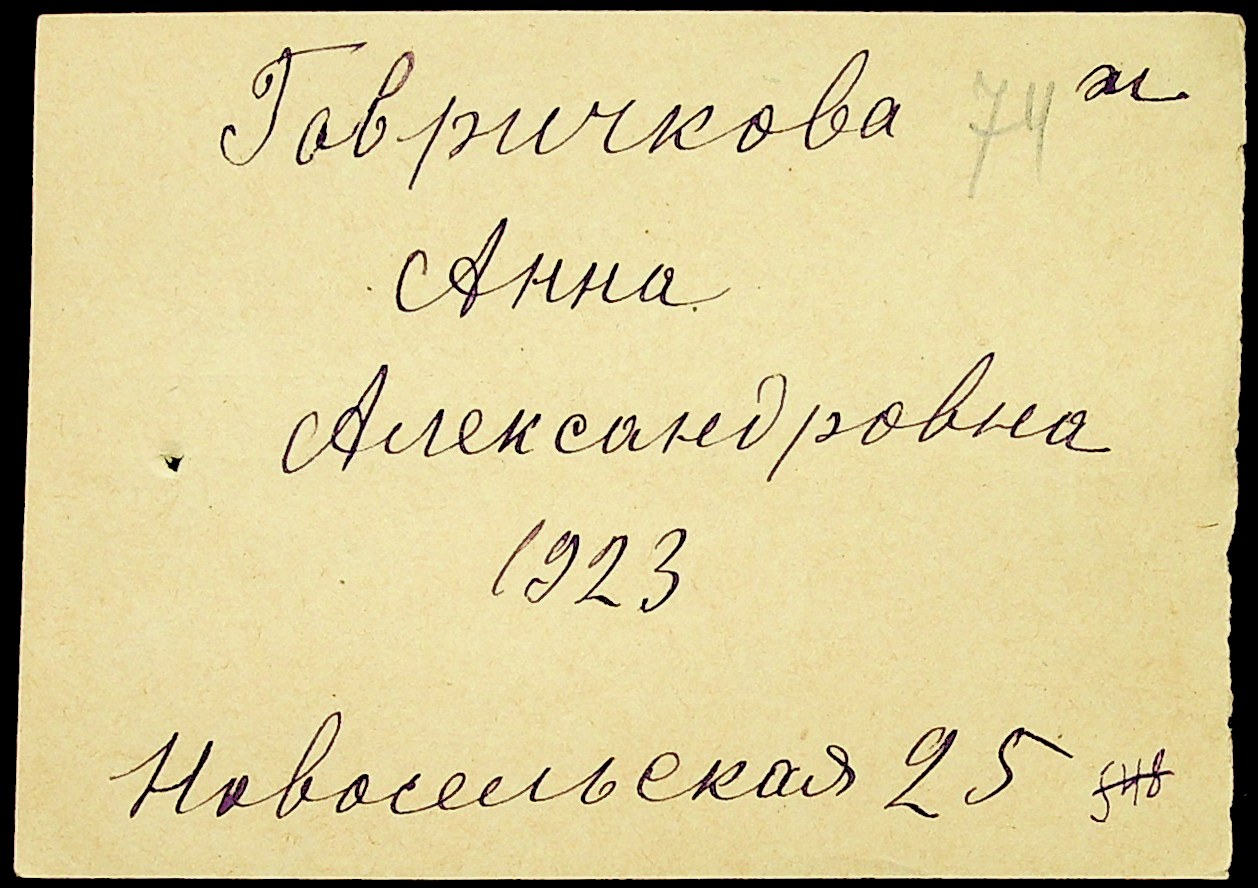 Говричкова 74 ж
Анна
Александровна
1923
Новосельская 25